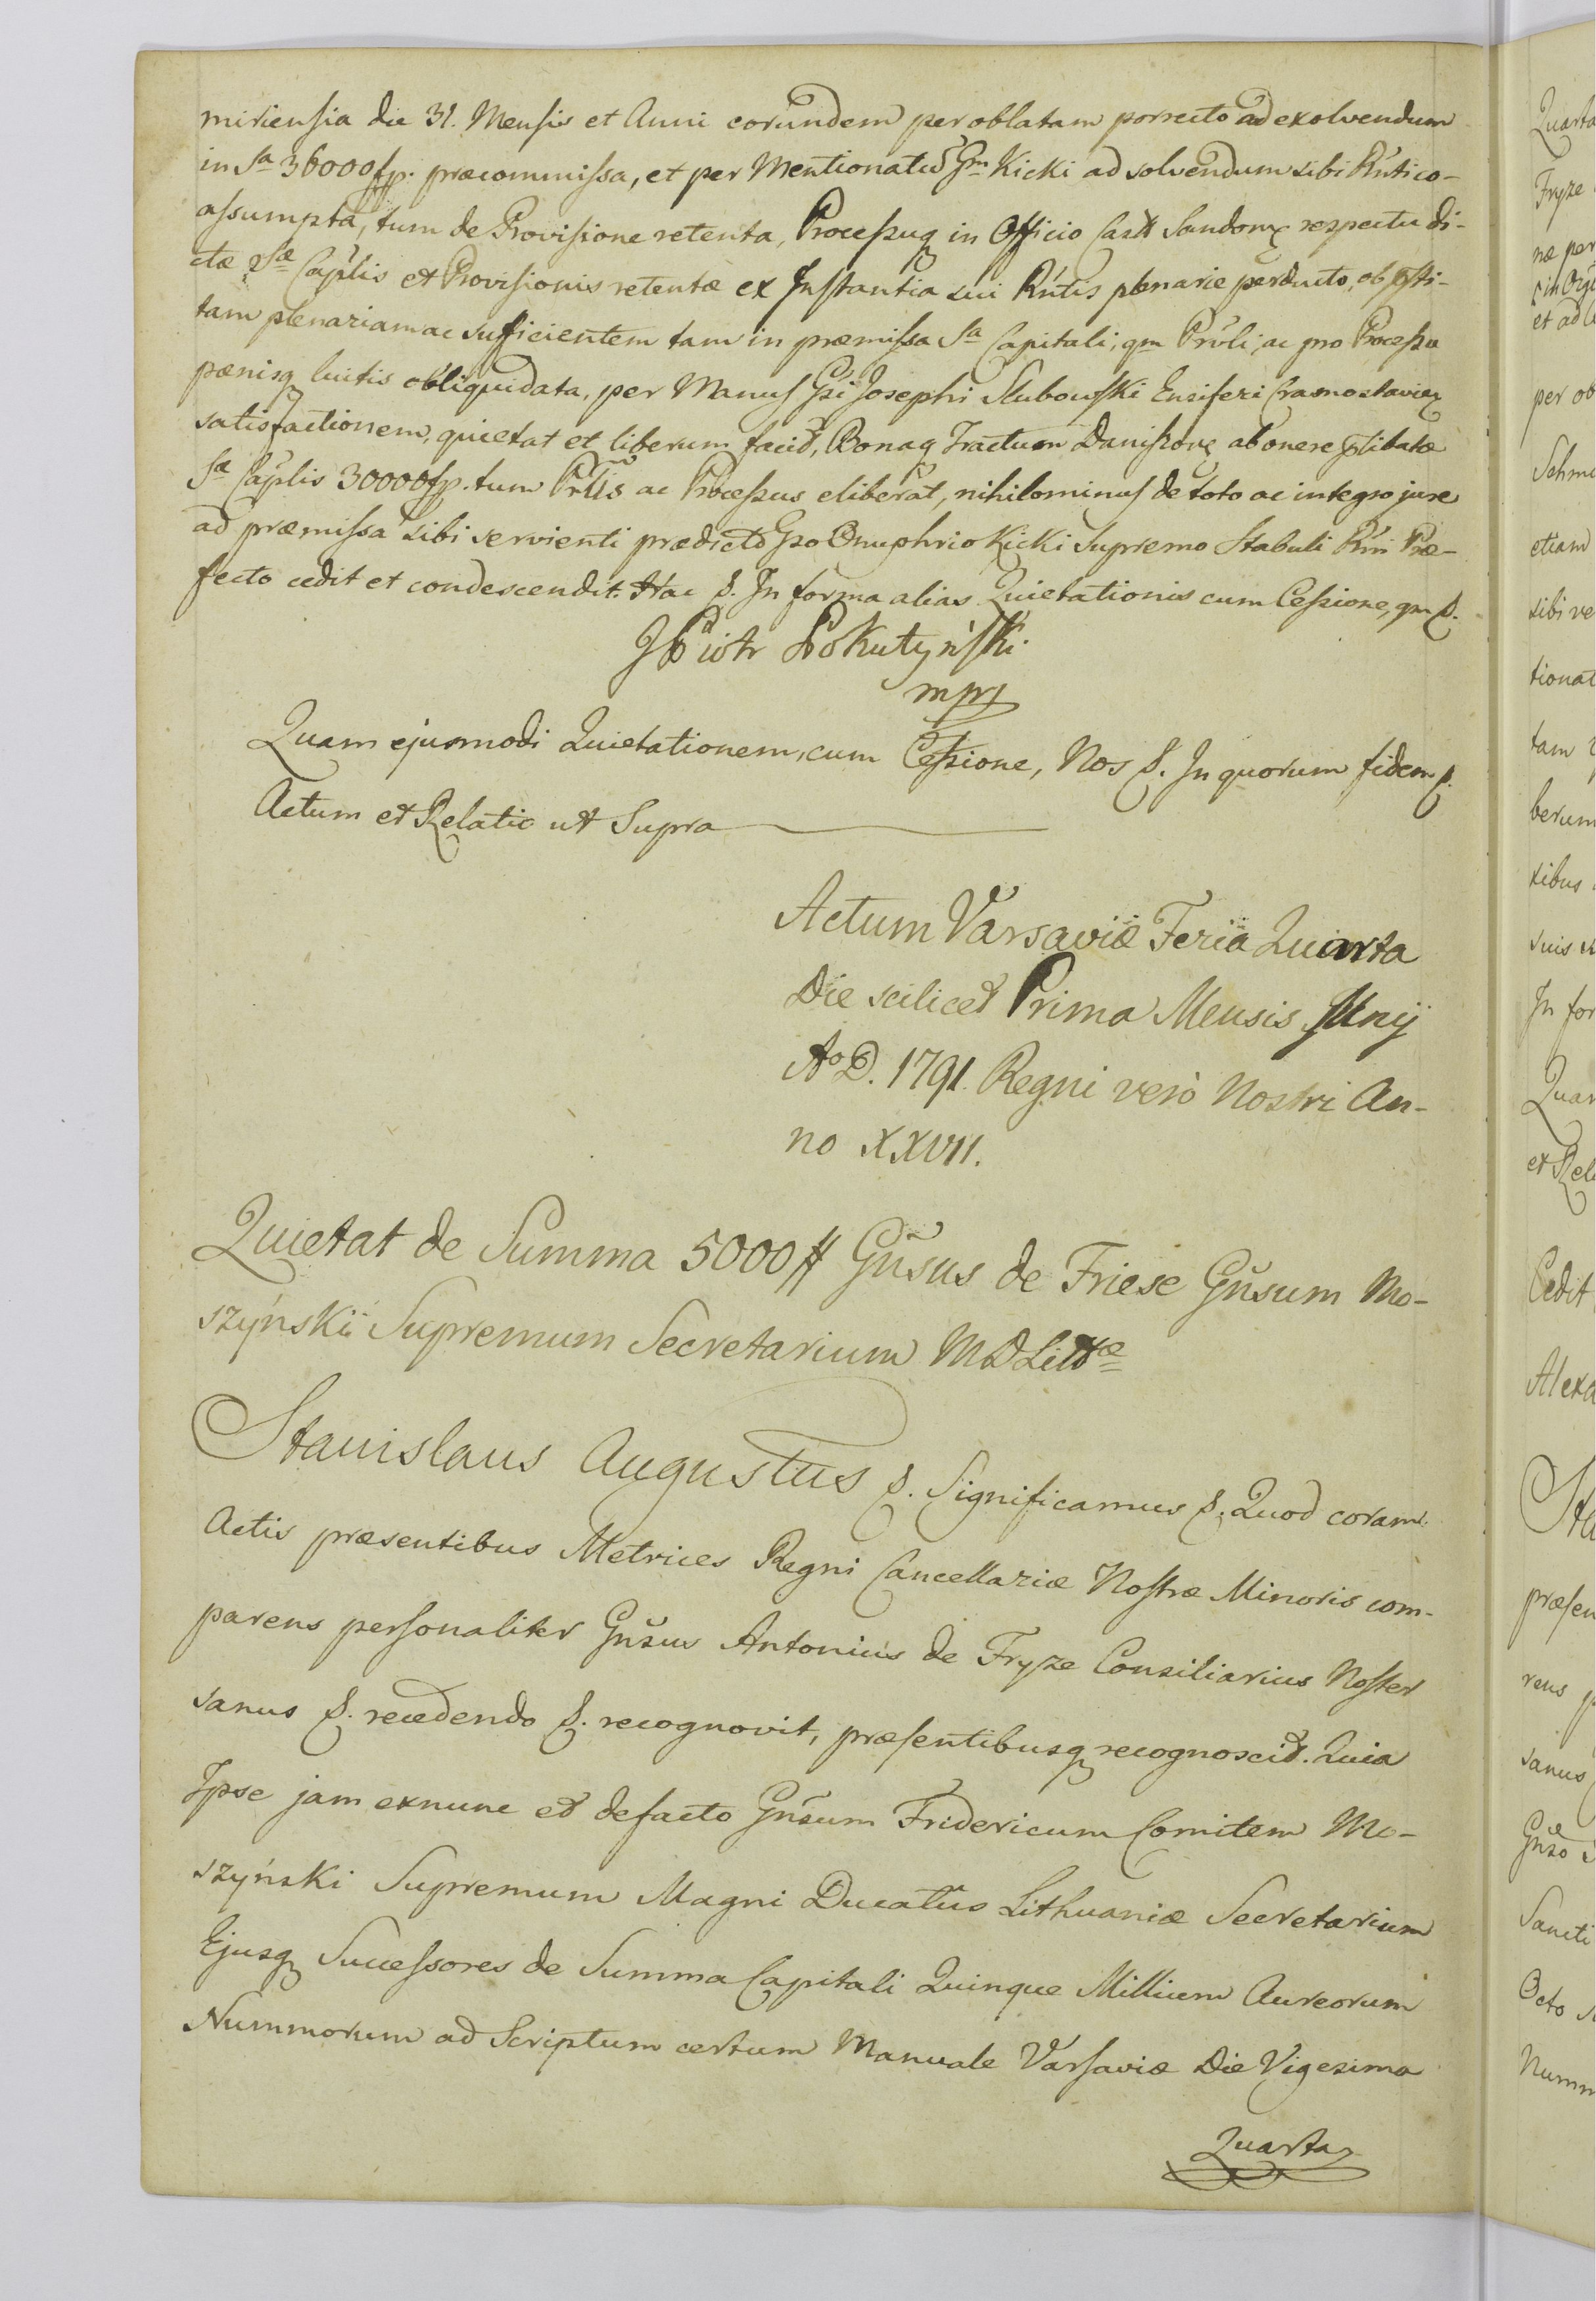 miriensia die 31. Mensis et Anni eorundem per oblatam porrecto ad exolvendum
in Sa 36000 fp. præcommissa, et per Mentionatũ Gm Kicki ad solvendum sibi Rntico-
assumpta, tum de Provisione retenta, Processuq in Officio Cast Sandom respectu di-
ctæ Sæ Caplis et Provisionis retentæ ex Instantia sui Rntis plenarie perducto, ob
tam plenariam ac sufficientem tam in præmissa Sa Capitali, qm Prvli, ac pro Processu
pænisq luitis obliquidata, per Manus Gsi Josephi Slubowski Ensiferi Crasnostavien
satisfactionem, quietat et liberum facit, Bonaq Tractum Daniszow ab onere plibatæ
Sa Caplis 30000 fp. tum Prlis ac Processus eliberat, nihilominus de toto ac integro jure
ad præmissa sibi servienti prædicto Gso Onuphrio Kicki Supremo Stabuli Rni Præ-
fecto cedit et condescendit. Hac &. In forma alias Quietationis cum Cessione, qm &.
JPiotr Pokutyński
mpr
Quam ejusmodi Quietationem, cum Cessione, Nos &. In quorum fidem &.
Actum et Relatio ut Supra
Actum Varsaviæ Feria Quarta
Die scilicet Prima Mensis Junij
Ao D. 1791. Regni verò Nostri An-
no XXVII.
Quietat de Summa 5000 # Gnsus de Friese Gnsum Mo-
szyński Supremum Secretarium MD Littæ
Stanislaus Augustus &. Significamus &. Quod coram
Actis præsentibus Metrices Regni Cancellariæ Nostræ Minoris com-
parens personaliter Gnsus Antonius de Fryze Consiliarius Noster
sanus &. recedendo &. recognovit, præsentibusq recognoscit. Quia
Ipse jam exnunc et defacto Gnsum Fridericum Comitem Mo-
szyński Supremum Magni Ducatûs Lithuaniæ Secretarium
Ejusq Successores de Summa Capitali Quinque Millium Aureorum
Nummorum ad Scriptum certum Manuale Varsaviæ Die Vigesima
Quarta